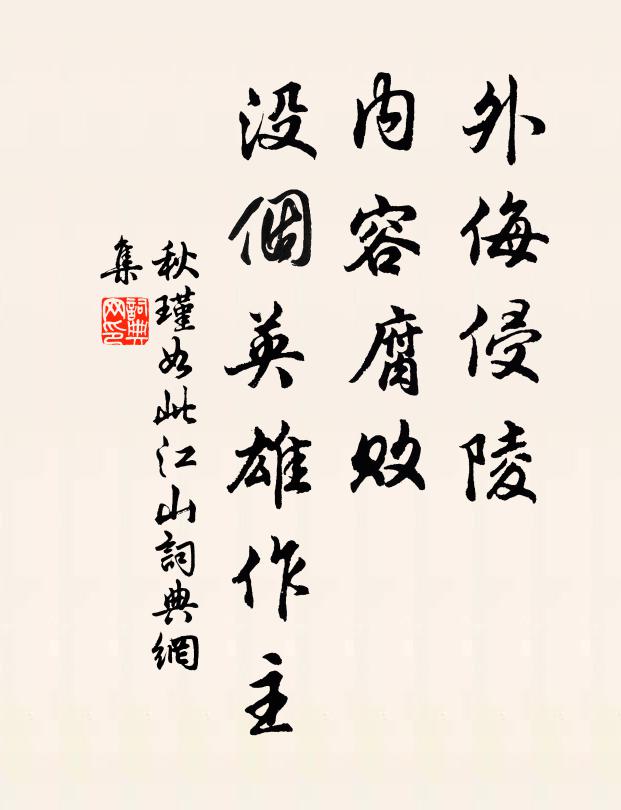 外侮侵陵
内容腐敗
没個英雄作主
秋瑾如此江山詞典網
集
詞典
网印